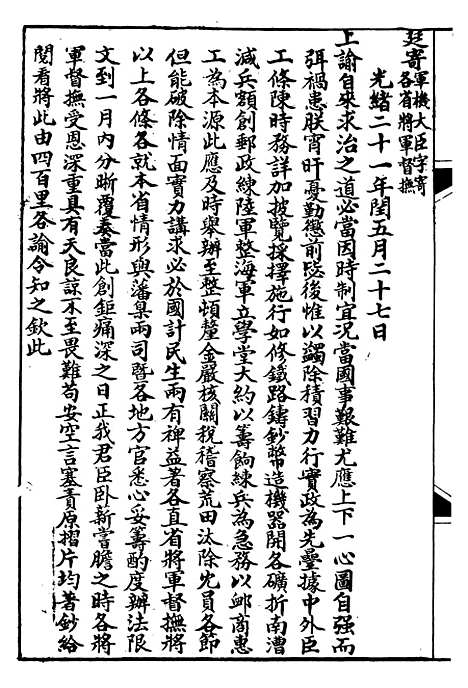 廷寄軍機大臣字寄各省將軍督撫
光緒二十一年閏五月二十七日
上諭自來求治之道必當因時制宜況當國事艱難尤應上下一心圖自强而
弭禍患朕宵旰憂勤懲前毖後惟以蠲除積習力行實政為先疊據中外臣
工條陳時務詳加披覽採擇施行如修鐵路鑄鈔幣造機器開各礦折南漕
減兵額創郵政練陸軍整海軍立學堂大約以籌餉練兵為急務以卹商惠
工為本源此應及時舉辦至整頓釐金嚴核關稅稽察荒田汰除冗員各節
但能破除情面實力講求必於國計民生兩有裨益著各直省將軍督撫將
以上各條各就本省情形與藩臬兩司暨各地方官悉心妥籌酌度辦法限
文到一月內分晰覆奏當此創鉅痛深之日正我君臣臥薪嘗膽之時各將
軍督撫受恩深重具有天良諒不至畏難苟安空言塞責原摺片均著鈔給
閱看將此由四百里各諭令知之欽此